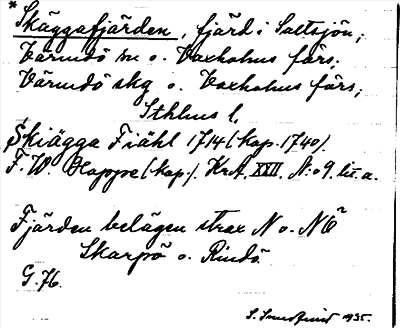 * Skäggafjärden, fjärd i Saltsjön;
Värmdö sn o. Vaxholms förs.
Värmdö skg o. Vaxholms förs;
Sthlms l.
Skiägga Fiähl 1714 (Kop. 1740).
F. W. Happe (kap.). KrA. XXII. N:o 9. lit. a.
Fjärden belägen strax N o. NÖ
Skarpö o. Rindö.
G. 76.
1935.